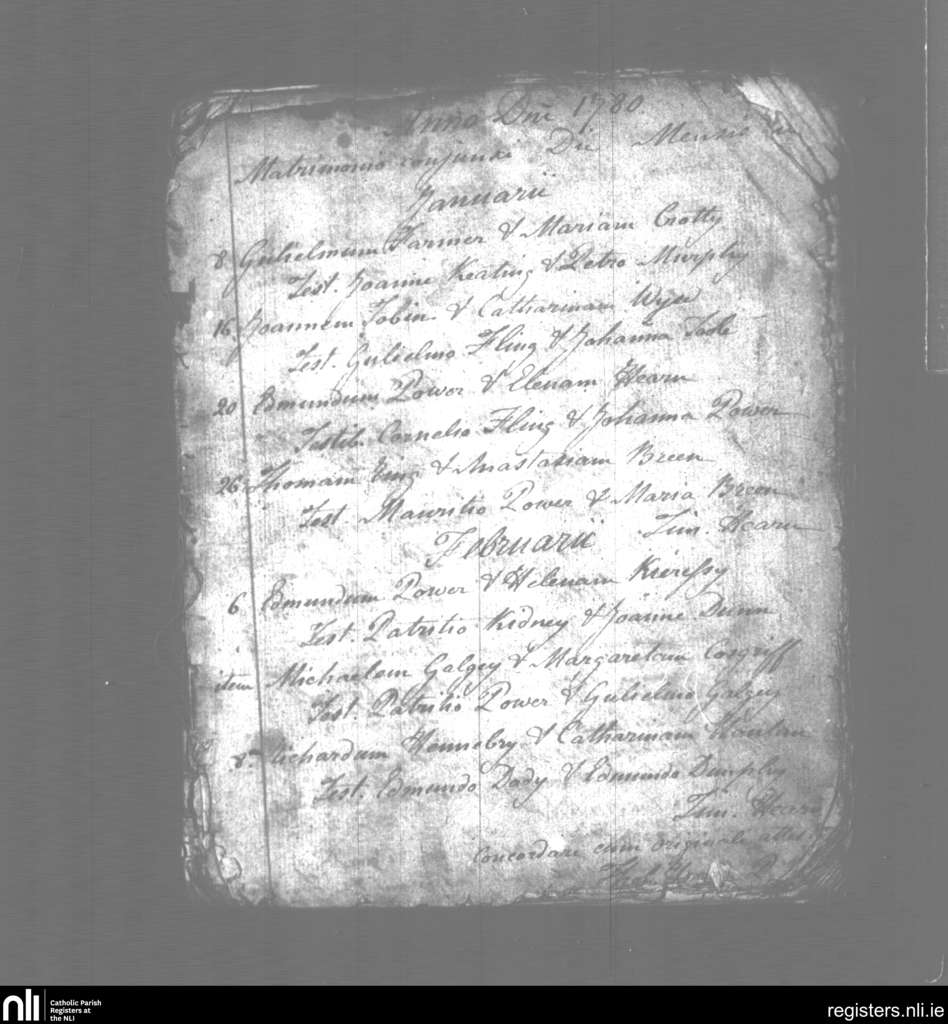 Anno Dni 1780
Matrimonio conjunxi Die Mensis
Januarii
8 Gulielmum Farmer & Mariam Crotty
Test. Joanne Keating & Petro Murphy
16 Joannem Tobin & Catharinam Wyse
Test. Gulielmo Fling & Johanna Toole
20 Edmundum Power & Elenam Hearn
Testib. Cornelio Fling & Johanna Power
26 Thomam & Anastasiam Breen
Test. Mauritio Power & Maria Breen
Februarii Tim. Hearn
6 Edmundum Power & Helenam
Test. Patritio Kidney & Joanne Dunn
item Michaelem Galgey & Margaretam Cosgriff
Test. Patritio Power & Gulielmo Galgey
8 Richardum Hennebry & Catharinam
Test. Edmundo Dody & Edmundo Dunphy
Tim. Hearn
Concordare cum originali
nli Catholic Parish
Registers at
the NLI
registers.nli.ie